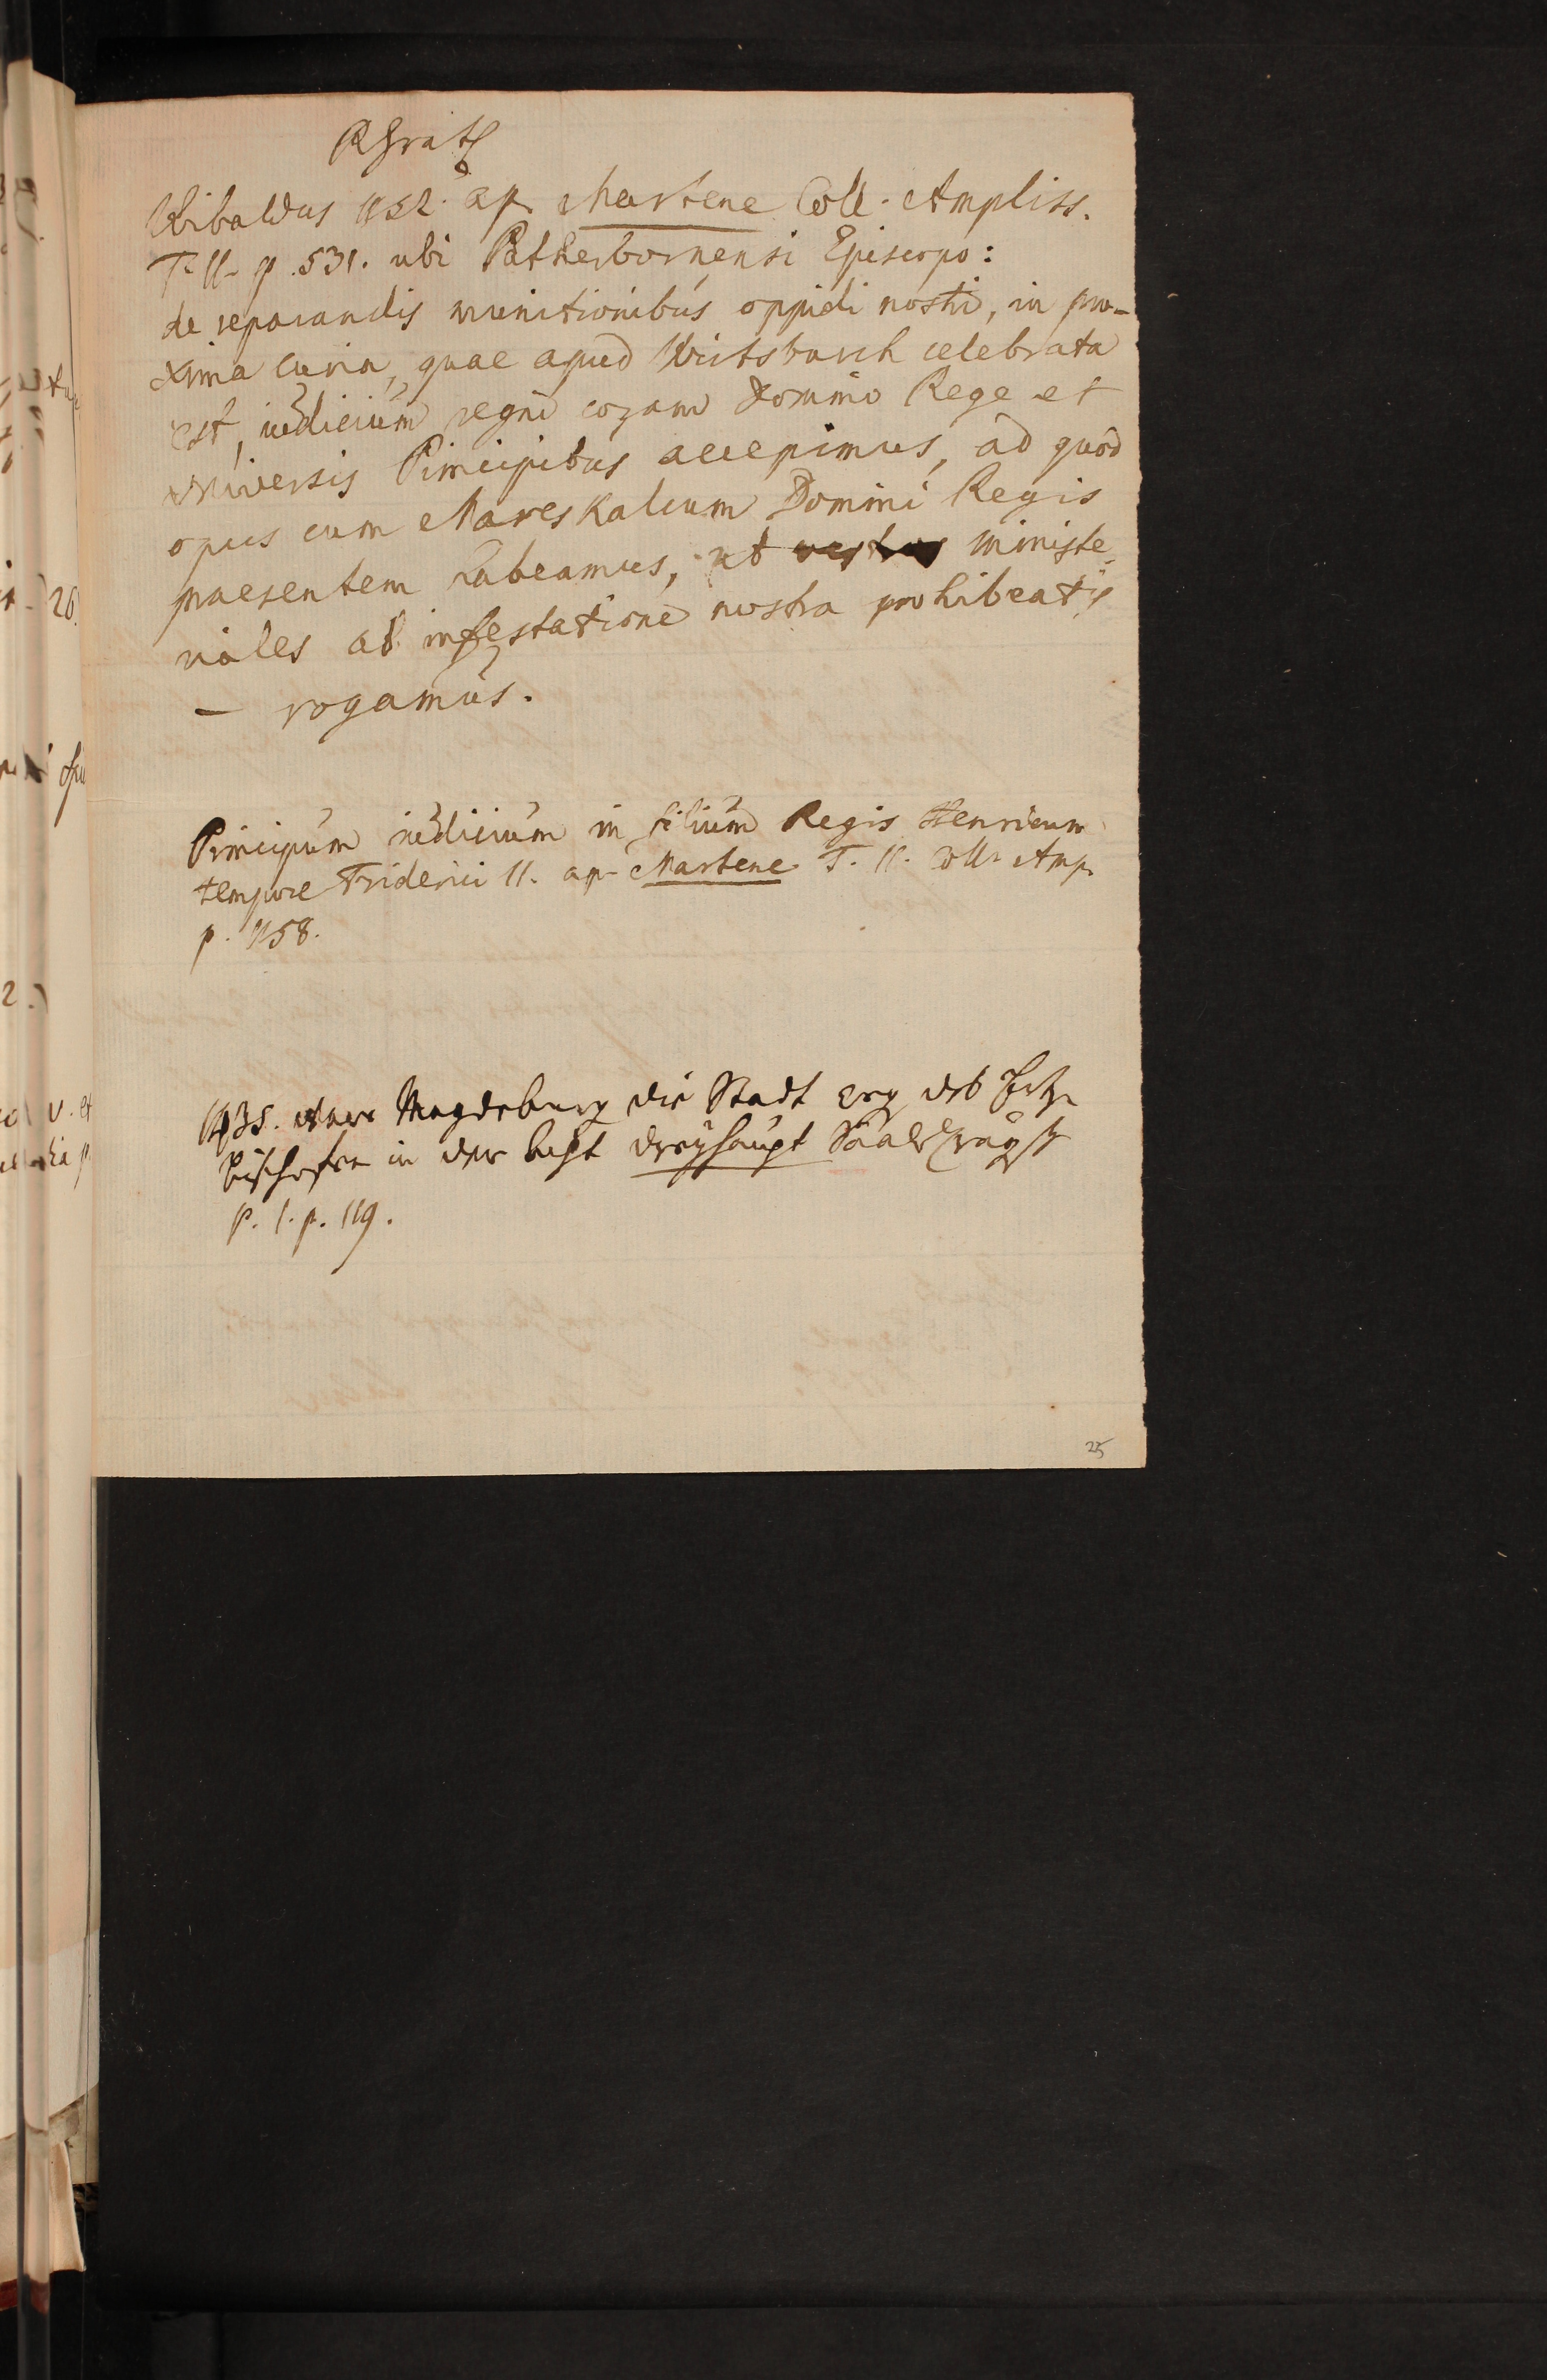 RHrath
Wibaldus 1152. ap. Martene Coll. Ampliss.
T. II. p. 531. ubi Patherbornensi Episcopo:
de reparandis munitionibus oppidi nostri, in pro-
xima curia, quae apud Wirtsburch celebrata
est, iudicium regni coram Domino Rege et
universis Principibus accepimus, ad quod
opus cum Mareskalcum Domini Regis
praesentem habeamus, ut ministe-
riales ab infestatione nostra prohibeatis
— rogamus.
Principum iudicium in filium Regis Henricum
tempore Friderici II. ap. Martene T. II. Coll. Amp.
p. 1158.
1435. war Magdeburg die Stadt des Ertz-
Bischofen in der Dreyhaupt Saal Crayß
P. 1. p. 119.
25